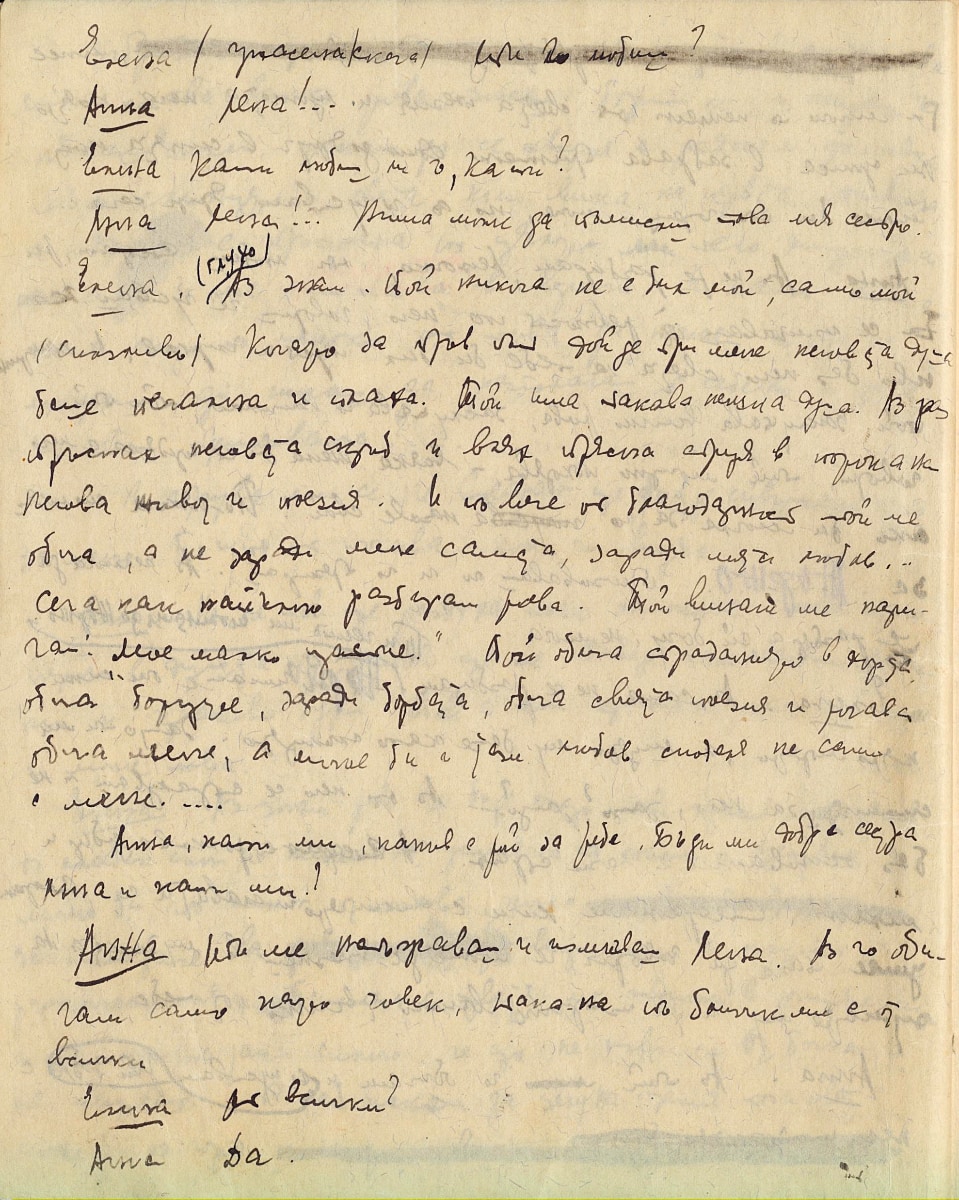 Елена (ужасена/скача) Ти го любиш?
Анна Лена!...
Елена Кажи любиш ли го, кажи?
Анна Лена!.. Нима може да помислиш това моя сестро.
Елена. (глухо) Аз знам. Той никога не е бил мой, само мой
(спокойно) Когато за пръв път дойде при мене неговата душа
беше печална и плаха. Той има такава нежна душа. Аз раз
пръснах неговата скръб и внях прясна струя в
негова живот и поезия. И повече от благодарност той ме
обича, а не заради мене самата, заради моята любов...
Сега пак разбирам това. Той винаги ме нари-
чаш: "Мое малко цвете." Той обича страданието в хората,
обича борците, заради борбата, обича своята поезия и тогава
обича мене, а може би и тази любов споделя не само
с мене. ....
Анна, кажи ми, какъв е той за тебе. Бъди ми добра сестра
Анна и кажи ми!
Анна Ти ме и измъчваш Лена. Аз го оби-
чам само като човек, така-па по близък ми е от
всички
Елена От всички?
Анна Да.